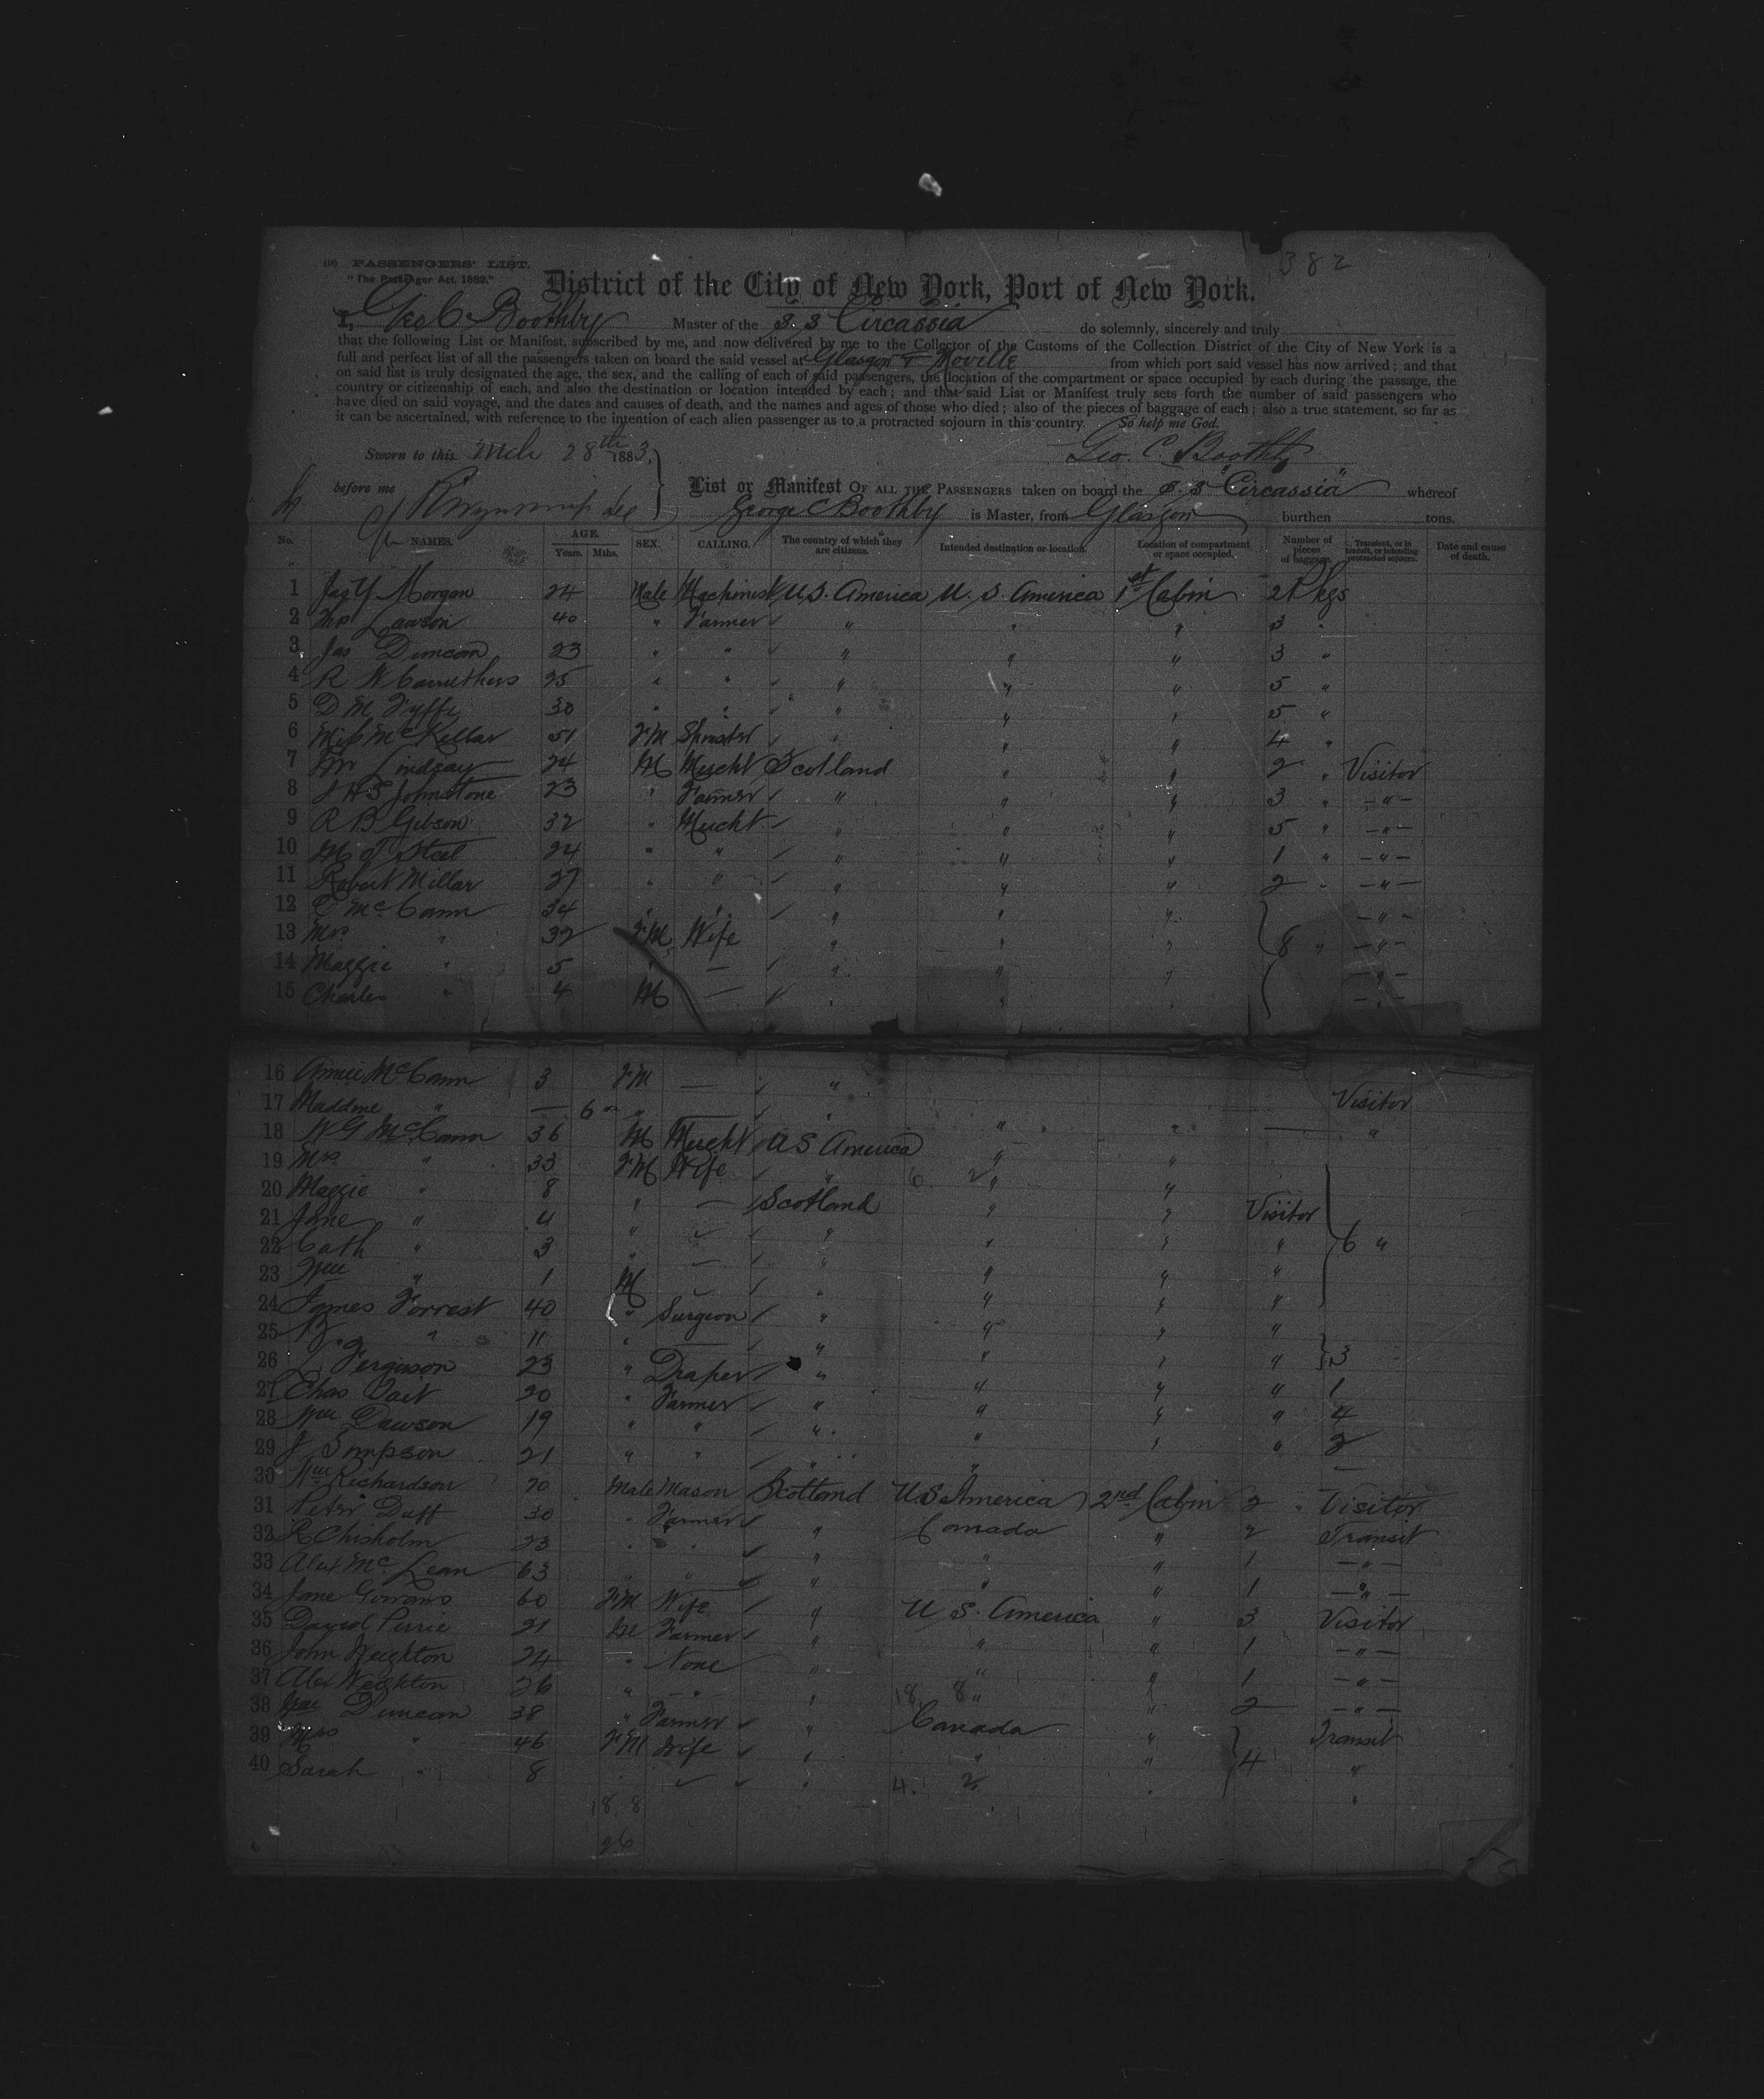 (11) PASSENGERS' LIST. 382
"The Passenger Act, 1882."
District of the City of New York, Port of New York.
I, Geo C Boothby Master of the S. S Circassia do solemnly, sincerely and truly
that the following List or Manifest, subscribed by me, and now delivered by me to the Collector of the Customs of the Collection District of the City of New York is a
full and perfect list of all the passengers taken on board the said vessel at Glasgow & Moville from which port said vessel has now arrived; and that
on said list is truly designated the age, the sex, and the calling of each of said passengers, the location of the compartment or space occupied by each during the passage, the
country or citizenship of each, and also the destination or location intended by each; and that said List or Manifest truly sets forth the number of said passengers who
have died on said voyage, and the dates and causes of death, and the names and ages of those who died; also of the pieces of baggage of each; also a true statement, so far as
it can be ascertained, with reference to the intention of each alien passenger as to a protracted sojourn in this country. So help me God.
Sworn to this Mch 28th 1883. Geo. C. Boothby
before me
List or Manifest OF ALL THE PASSENGERS taken on board the S. S "Circassia" whereof
George C Boothby is Master, from Glasgow burthen tons.
No. NAMES. AGE. Years. Mths. SEX. CALLING. The country of which they are citizens. Intended destination or location. Location of compartment or space occupied. Number of pieces of baggage. Transient, or in transit, or intending protracted sojourn. Date and cause of death.
1 Jas Y Morgan 24 Male Machinist U.S. America U. S. America 1st Cabin 2 Pkgs
2 Thos Lawson 40 " Farmer " " " 3 "
3 Jas Duncan 23 " " " " " 3 "
4 R W Carruthers 25 " " " " " 5 "
5 D M Fyffe 30 " " " " " 5 "
6 Miss McKellar 51 FM Spinster " " " 4 "
7 Lindsay 24 M Mercht Scotland " " 2 " Visitor
8 J H S Johnstone 23 " Farmer " " " 3 " - " -
9 R B Gibson 32 " Mercht " " " 5 " - " -
10 M J Steel 24 " " " " " 1 " - " -
11 Robert Millar 27 " " " " " 2 " - " -
12 McCann 34 " " " " " - " -
13 Mrs " 32 FM Wife " " " 8 " - " -
14 Maggie " 5 " — " " " - " -
15 Charles " 4 M — " " " - " -
16 Annie McCann 3 FM — " Visitor
17 " — 6 m " " " " — "
18 W G McCann 36 M Mercht U S America " "
19 Mrs " 33 FM Wife " 6 2 " "
20 Maggie " 8 " — Scotland " " Visitor
21 Jane " 4 " " " " " 6 "
22 Cath " 3 " — " " " "
23 Wm " 1 M " " " "
24 James Forrest 40 " Surgeon " " " "
25 B " 11 " — " " " " 3
26 L Ferguson 23 " Draper " " " " 1
27 Chas Tait 20 " Farmer " " " " 4
28 Wm Dawson 19 " " " " " " 2
29 J Simpson 21 " " " " —
30 Wm Richardson 20 Male Mason Scotland U S America 2nd Cabin 2 " Visitor
31 Peter Duff 30 " Farmer " Canada " 2 Transit
32 R Chisholm 23 " " " " " 1 - " -
33 Alex McLean 63 " " " " " 1 - " -
34 Jane Gowans 60 FM Wife " U S. America " 3 Visitor
35 David Pirrie 21 M Farmer " " " 1 - " -
36 John Weighton 24 " None " " " 1 - " -
37 Alex Weighton 26 " - " - " 18 8 " " 2 - " -
38 Duncan 38 " Farmer " Canada " Transit
39 Mrs " 46 FM Wife " " " 4 "
40 Sarah " 8 " " 4. 2. " "
18. 8
26